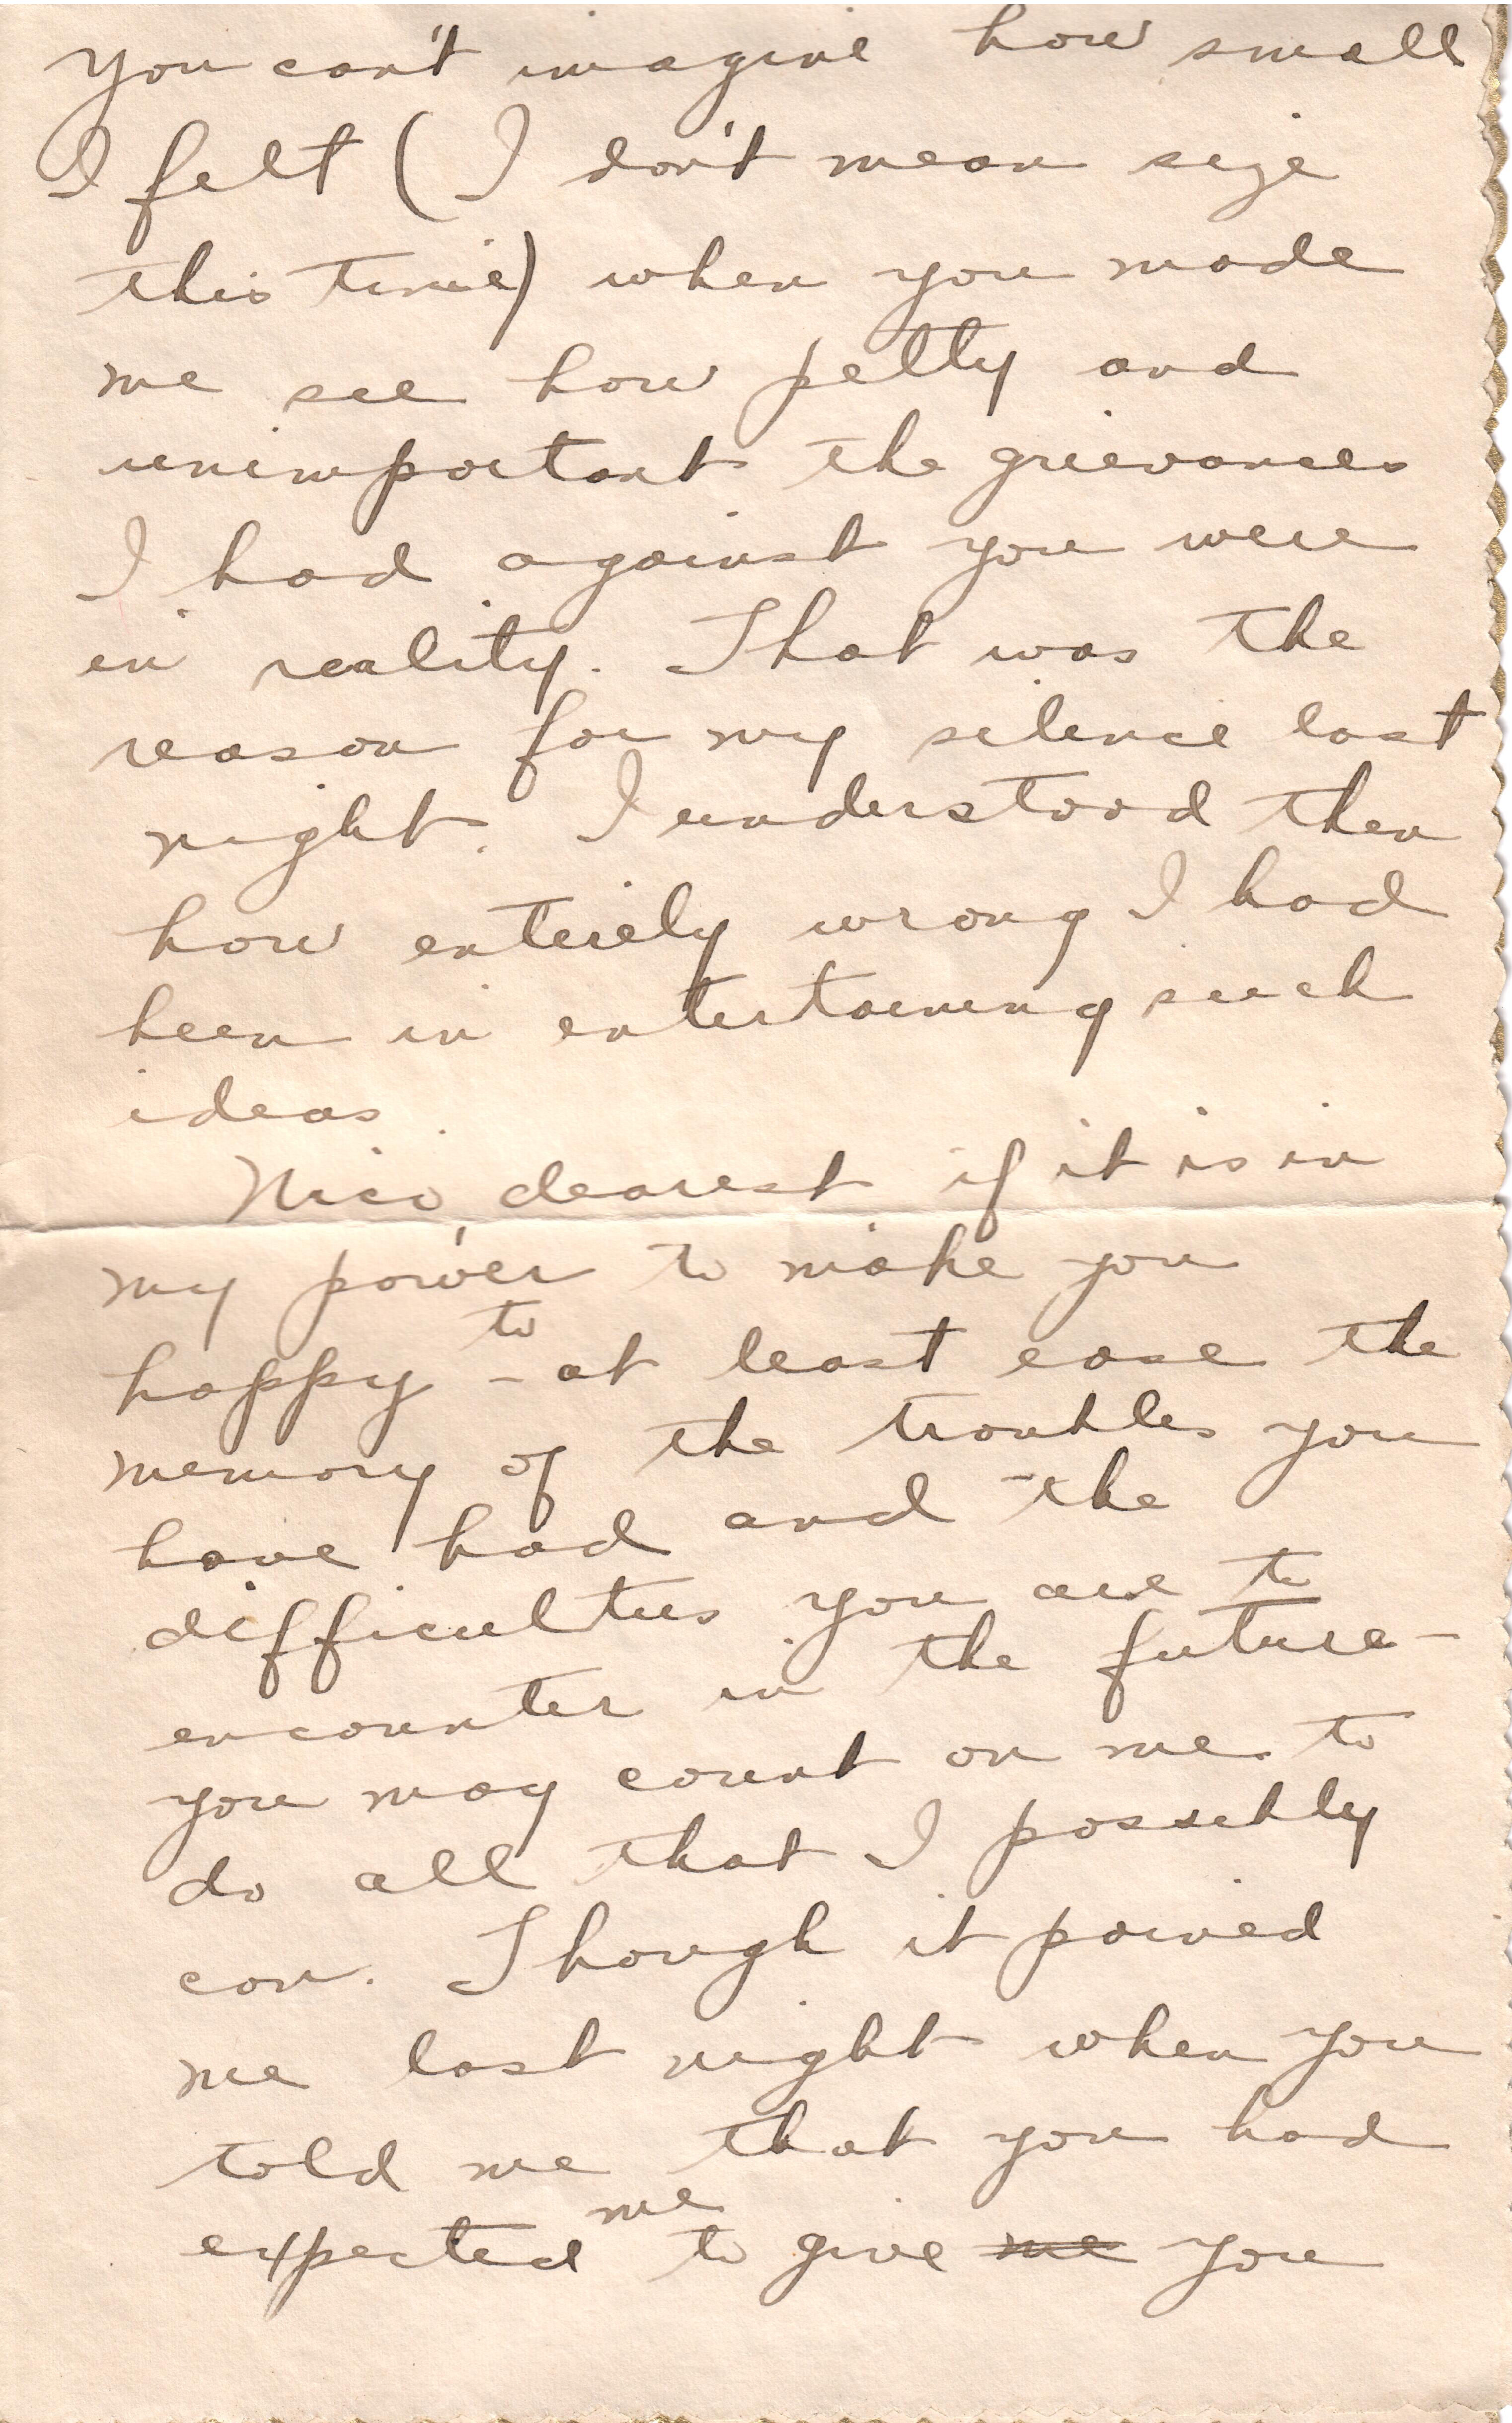 You can't imagine how small
I felt (I don't mean size
this time) when you made
me see how petty and
unimportant the grievances
I had against you were
in reality. That was the
reason for my silence last
night. I understood then
how entirely wrong I had
been in entertaining such
ideas.
Nico, dearest if it is in
my power to make you
happy - to at least ease the
memory of the troubles you
have had and the
difficulties you are to
encounter in the future -
you may count on me to
do all that I possibly
can. Though it pained
me last night when you
told me that you had
expected me to give ~~me~~ you